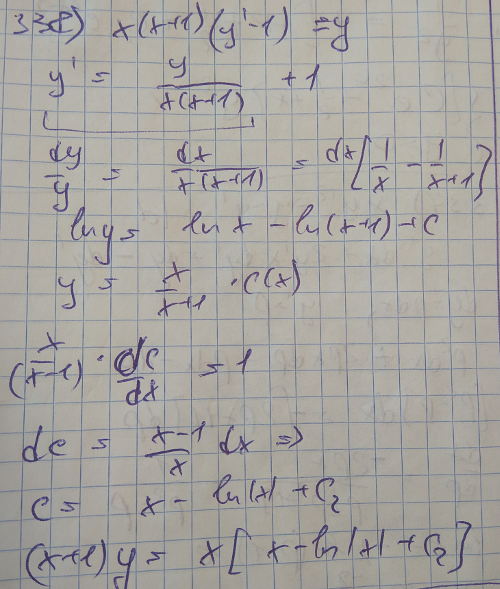 338) x(x+1)(y'-1) = y
y' = y/(x(x+1)) + 1
dy/y = dx/(x(x+1)) = dx[1/x - 1/(x+1)]
ln y = ln x - ln(x+1) + C
y = x/(x+1) · C(x)
x/(x-1) · dC/dx = 1
dC = (x-1)/x dx ⇒
C = x - ln|x| + C₂
(x+1) y = x[x - ln|x| + C₂]